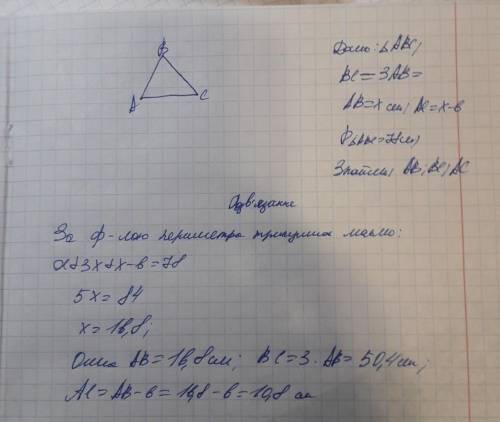 B
A
C
Дано: △ABC,
BC = 3AB =
AB = x см, AC = x - 6
P△ABC = 78 см,
Знайти: AB, BC, AC
Розв'язання
За ф-лою периметра трикутника маємо:
x + 3x + x - 6 = 78
5x = 84
x = 16,8;
Отже AB = 16,8 см; BC = 3 · AB = 50,4 см;
AC = AB - 6 = 16,8 - 6 = 10,8 см